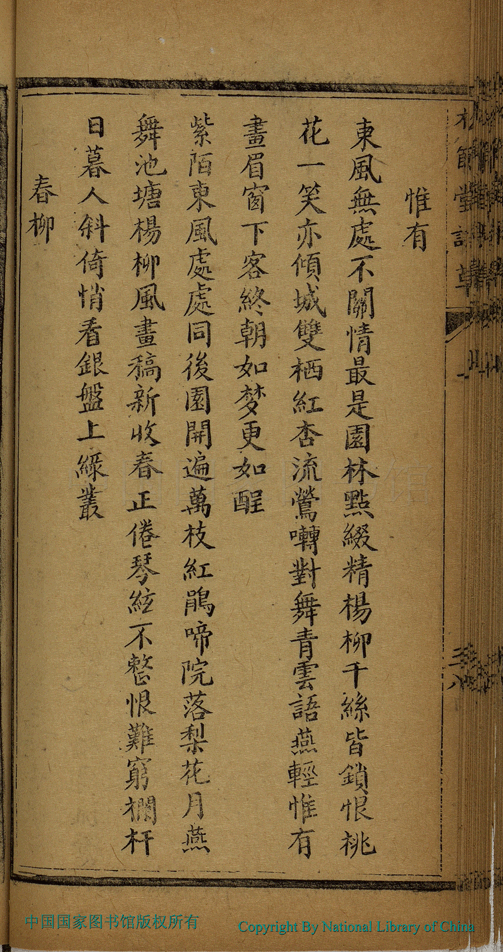 惟有
東風無處不關情最是園林點綴精楊柳千絲皆鎖恨桃
花一笑亦傾城雙栖紅杏流鶯囀對舞青雲語燕輕惟有
畫眉窗下客終朝如梦更如酲
紫陌東風處處同後園開遍萬枝紅鵑啼院落梨花月燕
舞池塘楊柳風畫稿新收春正倦琴絃不整恨難窮欄杆
日暮人斜倚悄看銀盤上綠叢
春柳
中国国家图书馆版权所有
Copyright By National Library of China